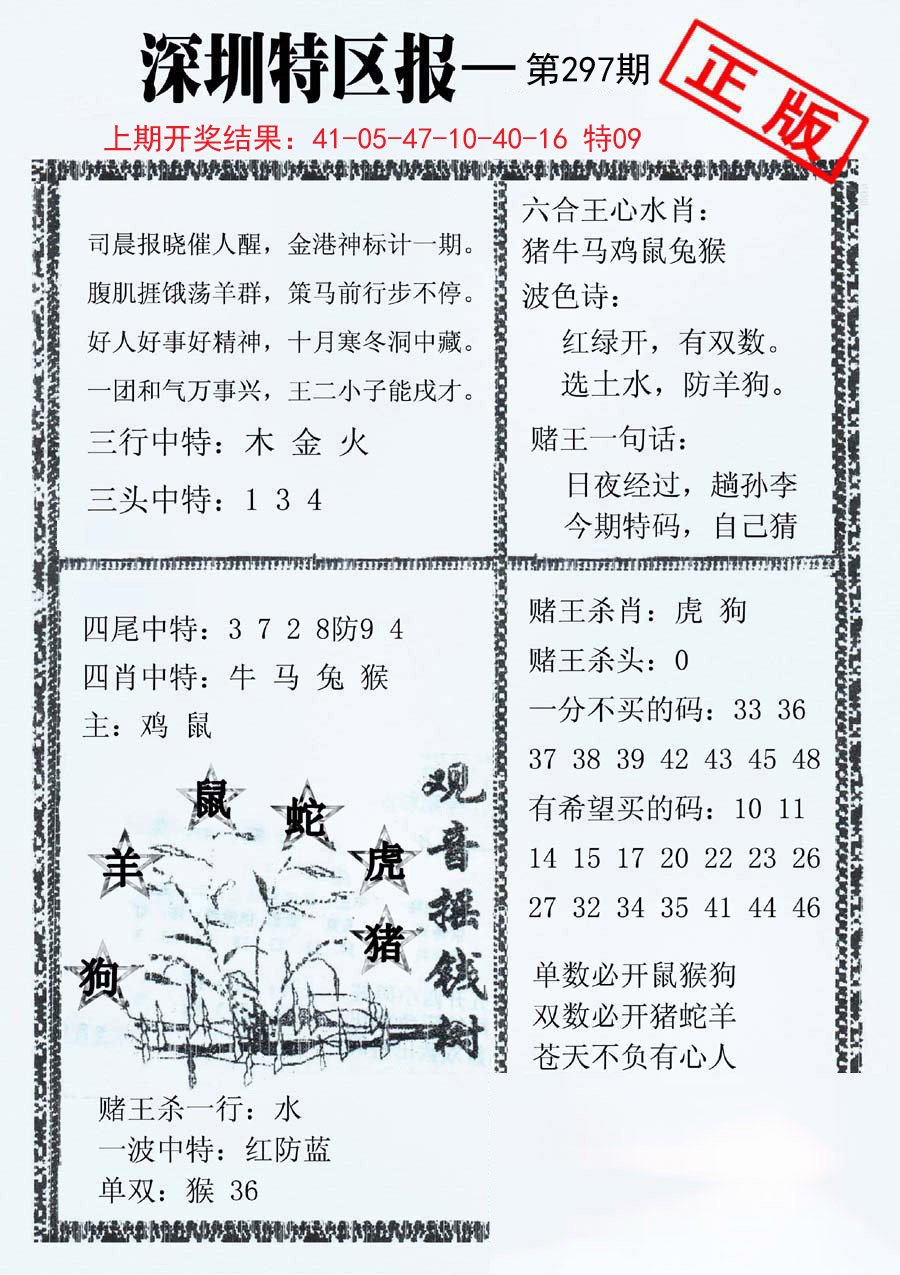 深圳特区报—第297期
正版
上期开奖结果：41-05-47-10-40-16 特09
司晨报晓催人醒，金港神标计一期。
腹肌捱饿荡羊群，策马前行步不停。
好人好事好精神，十月寒冬洞中藏。
一团和气万事兴，王二小子能成才。
三行中特：木 金 火
三头中特：1 3 4
六合王心水肖：
猪牛马鸡鼠兔猴
波色诗：
红绿开，有双数。
选土水，防羊狗。
赌王一句话：
日夜经过，趟孙李
今期特码，自己猜
四尾中特：3 7 2 8防9 4
四肖中特：牛 马 兔 猴
主：鸡 鼠
鼠
蛇
羊
虎
猪
狗
观音摇钱树
赌王杀一行：水
一波中特：红防蓝
单双：猴 36
赌王杀肖：虎 狗
赌王杀头：0
一分不买的码：33 36
37 38 39 42 43 45 48
有希望买的码：10 11
14 15 17 20 22 23 26
27 32 34 35 41 44 46
单数必开鼠猴狗
双数必开猪蛇羊
苍天不负有心人